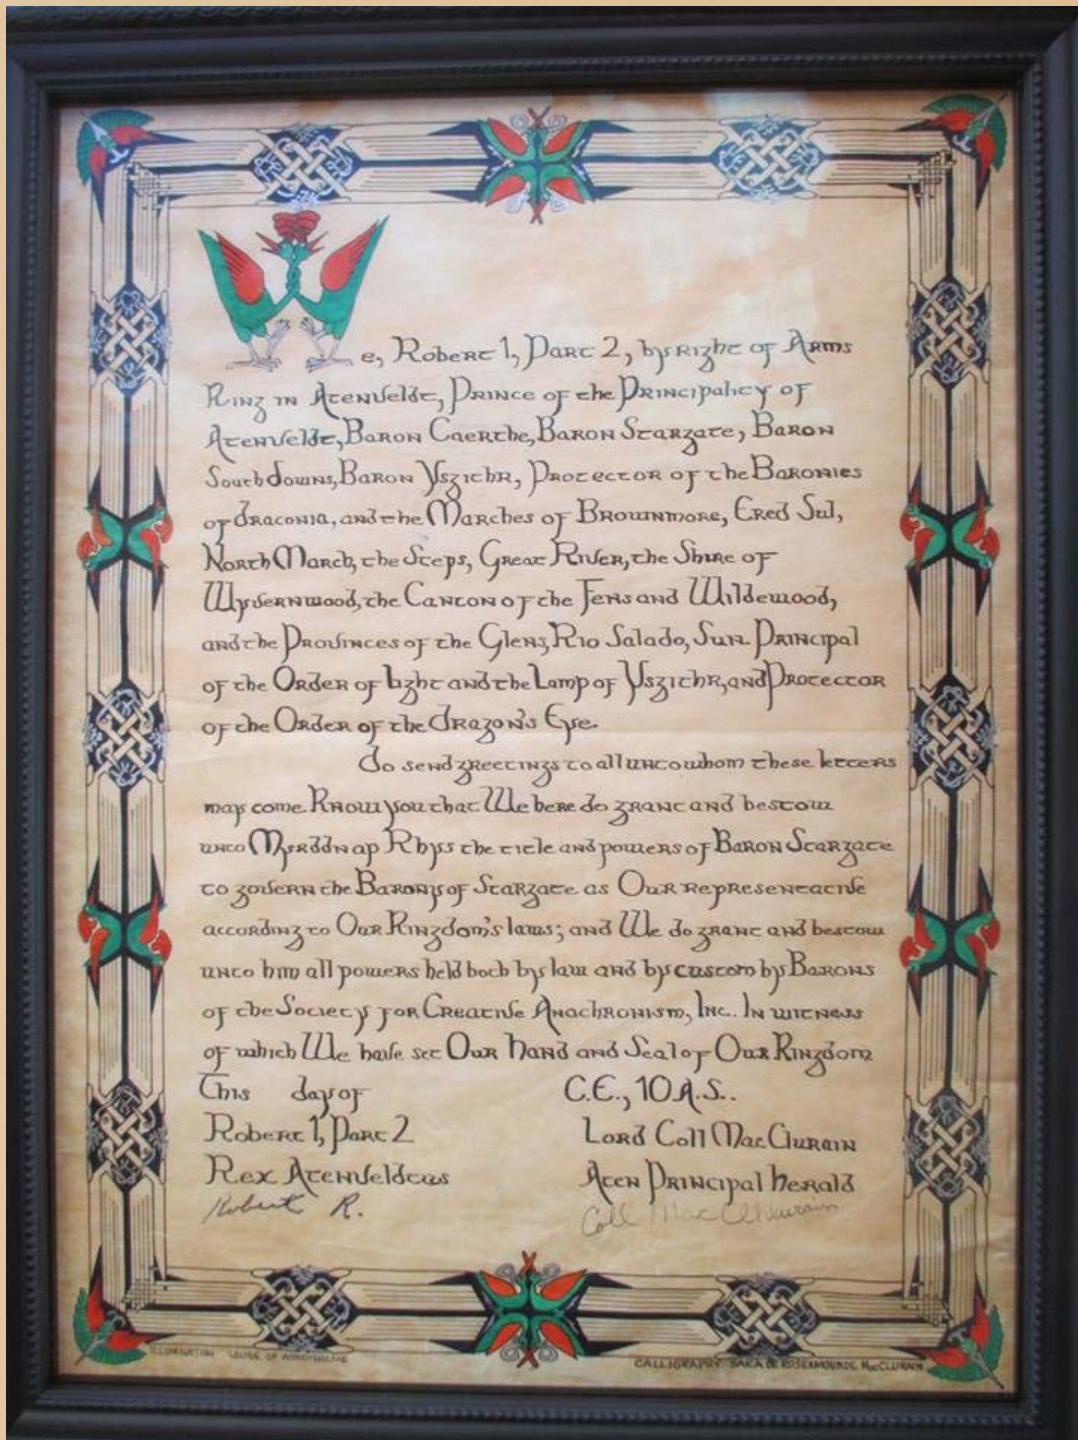 We, Robert 1, Part 2, by Right of Arms
King in Atenveldt, Prince of the Principality of
Atenveldt, Baron Caerthe, Baron Stargate, Baron
Southdowns, Baron Ysgithr, Protector of the Baronies
of Draconia, and the Marches of Brownmore, Ered Sul,
North March, the Steps, Great River, the Shire of
Wyvernwood, the Canton of the Fens and Wildewood,
and the Provinces of the Glens, Rio Salado, Sun. Principal
of the Order of Light and the Lamp of Ysgithr, and Protector
of the Order of the Dragon's Eye.
Do send greetings to all unto whom these letters
may come. Know you that We here do grant and bestow
unto Myrddn ap Rhys the title and powers of Baron Stargate
to govern the Barony of Stargate as Our representative
according to Our Kingdom's laws; and We do grant and bestow
unto him all powers held both by law and by custom by Barons
of the Society for Creative Anachronism, Inc. In witness
of which We have set Our Hand and Seal of Our Kingdom
This day of C.E., 10 A.S..
Robert 1, Part 2 Lord Coll MacClurain
Rex Atenveldtus Aten Principal Herald
Robert R. Coll MacClurain
ILLUMINATION LOUISE OF CALLIGRAPHY SARA DE ROSEAMOUNDE MacCLURAIN